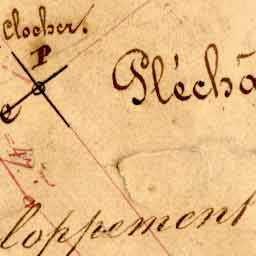 Clocher.
P
Pléchâ
e
loppement